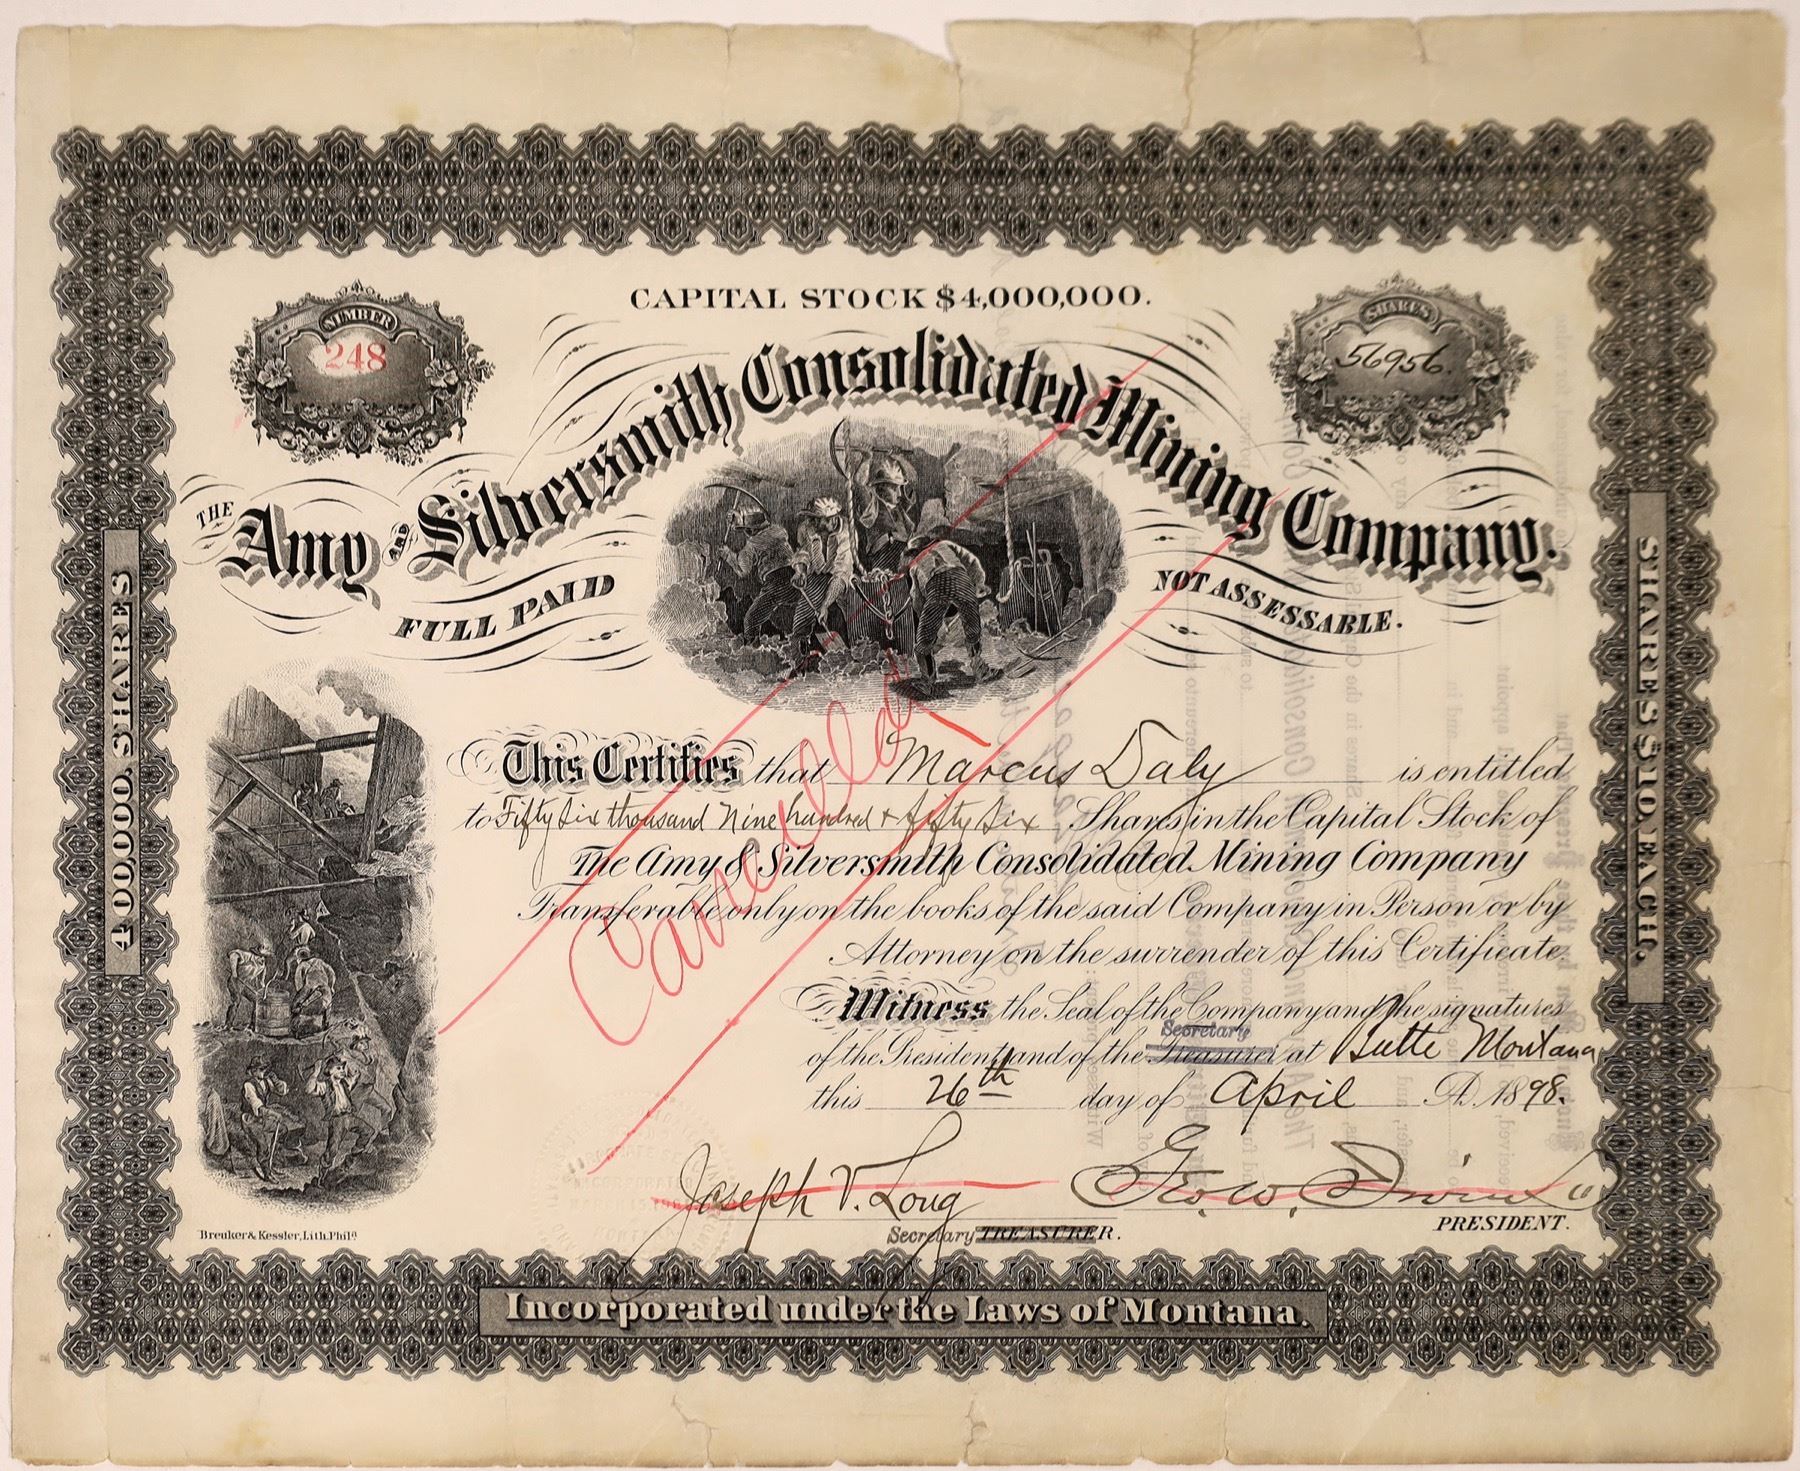 CAPITAL STOCK $4,000,000.
NUMBER
248
SHARES
56956.
THE Amy AND Silversmith Consolidated Mining Company.
FULL PAID
NOT ASSESSABLE.
400,000, SHARES
SHARES $10, EACH.
This Certifies that Marcus Daly is entitled
to Fifty Six thousand Nine hundred + fifty Six Shares in the Capital Stock of
The Amy & Silversmith Consolidated Mining Company
Transferable only on the books of the said Company in Person or by
Attorney on the surrender of this Certificate.
Cancelled
Witness the Seal of the Company and the signatures
Secretary
of the President and of the Treasurer at Butte Montana
this 26th day of April A.D. 1898.
Joseph V. Long
Geo. W. Irvin
Secretary TREASURER.
PRESIDENT.
Breuker & Kessler, Lith. Phila.
Incorporated under the Laws of Montana.